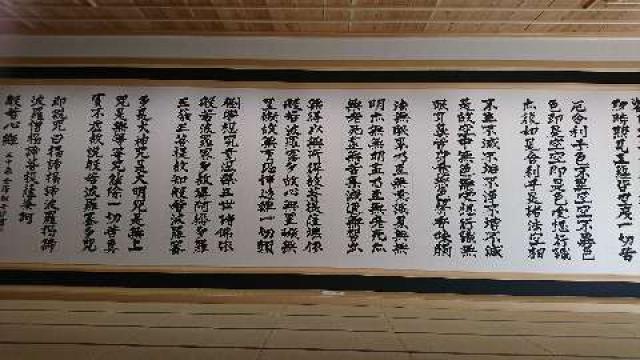 時照見五蘊皆空度一切苦
厄舎利子色不異空空不異色
色即是空空即是色受想行識
亦復如是舎利子是諸法空相
不生不滅不垢不浄不増不減
是故空中無色無受想行識無
眼耳鼻舌身意無色声香味触
法無眼界乃至無意識界無無
明亦無無明尽乃至無老死亦
無老死尽無苦集滅道無智亦
無得以無所得故菩提薩埵依
般若波羅蜜多故心無罣礙無
罣礙故無有恐怖遠離一切顛
倒夢想究竟涅槃三世諸仏依
般若波羅蜜多故得阿耨多羅
三藐三菩提故知般若波羅蜜
多是大神呪是大明呪是無上
呪是無等等呪能除一切苦真
実不虚故説般若波羅蜜多呪
即説呪曰羯諦羯諦波羅羯諦
波羅僧羯諦菩提薩婆訶
般若心経